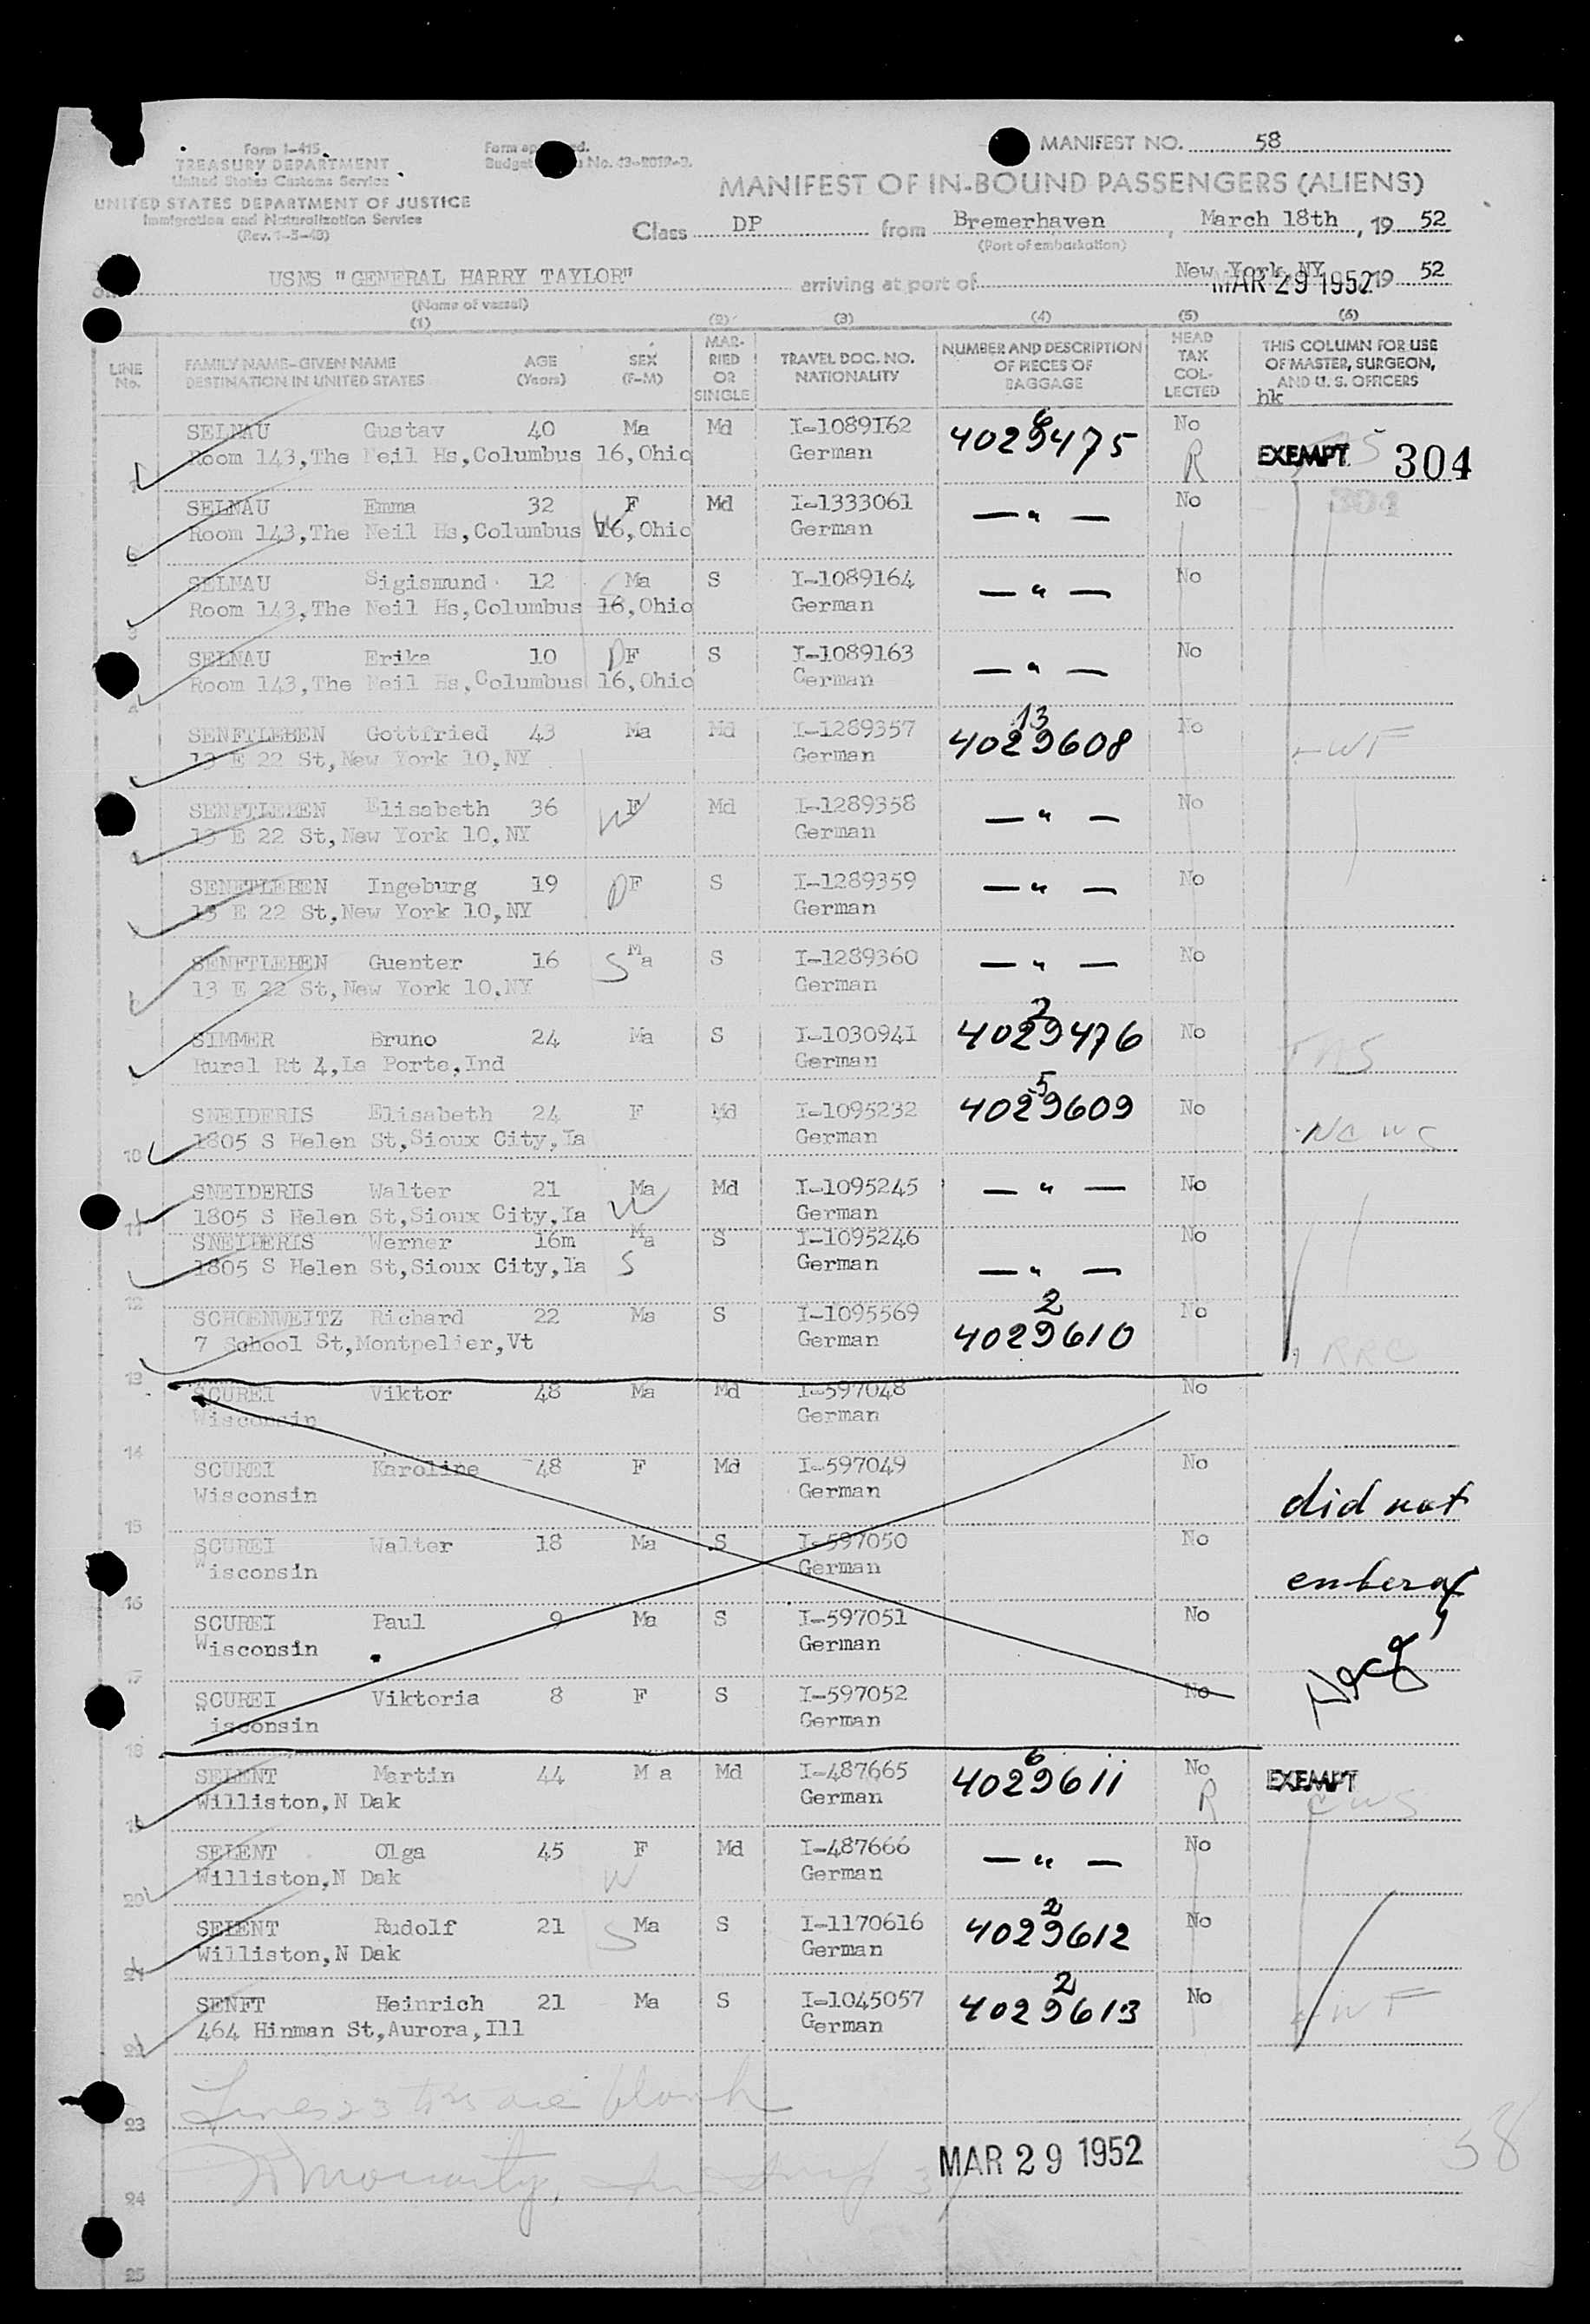 Form I-415
TREASURY DEPARTMENT
United States Customs Service
UNITED STATES DEPARTMENT OF JUSTICE
Immigration and Naturalization Service
(Rev. 1-3-48)
Form approved.
Budget No. 43-R012-3.
MANIFEST NO. 58
MANIFEST OF IN-BOUND PASSENGERS (ALIENS)
Class DP from Bremerhaven, March 18th, 19 52
(Port of embarkation)
USNS "GENERAL HARRY TAYLOR" arriving at port of New York, NY MAR 29 1952 19 52
(Name of vessel)
(1) (2) (3) (4) (5) (6)
LINE No. FAMILY NAME-GIVEN NAME DESTINATION IN UNITED STATES AGE (Years) SEX (F-M) MARRIED OR SINGLE TRAVEL DOC. NO. NATIONALITY NUMBER AND DESCRIPTION OF PIECES OF BAGGAGE HEAD TAX COLLECTED THIS COLUMN FOR USE OF MASTER, SURGEON, AND U. S. OFFICERS
hk
SELNAU Gustav 40 Ma Md I-1089162 6 4029475 No
Room 143,The Neil Hs,Columbus 16,Ohio German R EXEMPT 304
SELNAU Emma 32 F Md I-1333061 — " — No
Room 143,The Neil Hs,Columbus 16,Ohio W German
2
SELNAU Sigismund 12 Ma S I-1089164 — " — No
Room 143,The Neil Hs,Columbus 16,Ohio German
3
SELNAU Erika 10 D F S I-1089163 — " — No
Room 143,The Neil Hs,Columbus 16,Ohio German
4
SENFTLEBEN Gottfried 43 Ma Md I-1289357 13 4029608 No
13 E 22 St,New York 10,NY German LWF
SENFTLEBEN Elisabeth 36 W F Md I-1289358 — " — No
13 E 22 St,New York 10,NY German
SENFTLEBEN Ingeburg 19 D F S I-1289359 — " — No
13 E 22 St,New York 10,NY German
SENFTLEBEN Guenter 16 S Ma S I-1289360 — " — No
13 E 22 St,New York 10,NY German
SIMMER Bruno 24 Ma S I-1030941 2 4029476 No
Rural Rt 4,La Porte,Ind German
SNEIDERIS Elisabeth 24 F Md I-1095232 5 4029609 No
1805 S Helen St,Sioux City,Ia German NCWC
10
SNEIDERIS Walter 21 Ma Md I-1095245 — " — No
1805 S Helen St,Sioux City,Ia W German
11
SNEIDERIS Werner 16m Ma S I-1095246 No
1805 S Helen St,Sioux City,Ia S German — " —
12
SCHOENWEITZ Richard 22 Ma S I-1095569 2 4029610 No
7 School St,Montpelier,Vt German RRC
13
SCUREI Viktor 48 Ma Md I-597048 No
Wisconsin German
14
SCUREI Karoline 48 F Md I-597049 No
Wisconsin German did not
15
SCUREI Walter 18 Ma S I-597050 No
Wisconsin German
16
SCUREI Paul 9 Ma S I-597051 No
Wisconsin German
17
SCUREI Viktoria 8 F S I-597052 No
Wisconsin German
18
SELENT Martin 44 Ma Md I-487665 6 4029611 No EXEMPT
Williston,N Dak German R CWS
19
SELENT Olga 45 F Md I-487666 — " — No
Williston,N Dak W German
20
SELENT Rudolf 21 S Ma S I-1170616 2 4029612 No
Williston,N Dak German
21
SENFT Heinrich 21 Ma S I-1045057 2 4029613 No
464 Hinman St,Aurora,Ill German LWF
22
Lines 23 to 25 are blank
23
MAR 29 1952 58
24
25